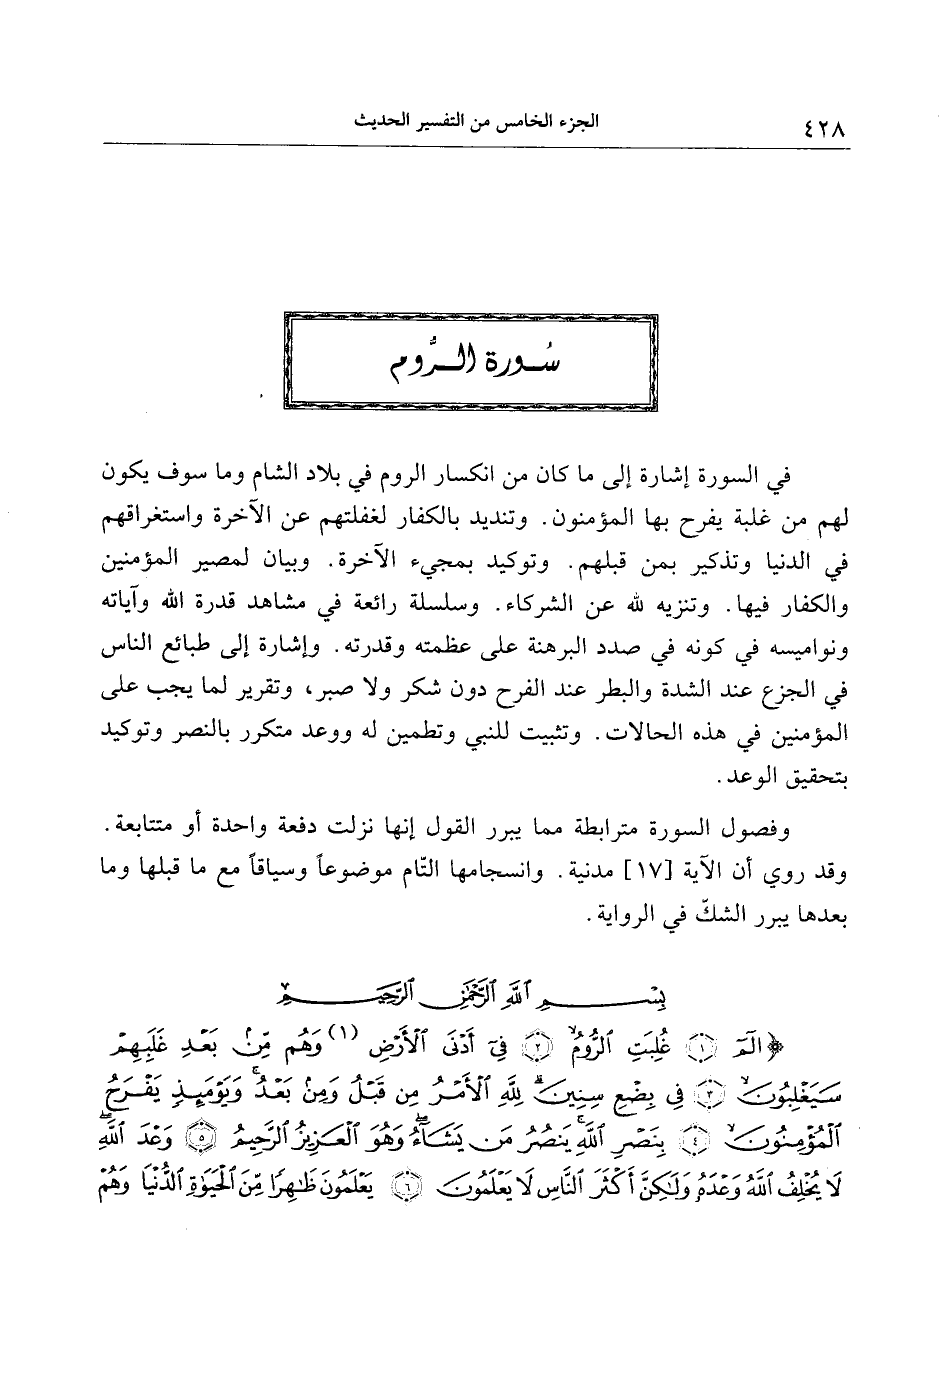 ٤٢٨
الجزء الخامس من التفسير الحديث
سُورة الرُّوم
في السورة إشارة إلى ما كان من انكسار الروم في بلاد الشام وما سوف يكون
لهم من غلبة يفرح بها المؤمنون. وتنديد بالكفار لغفلتهم عن الآخرة واستغراقهم
في الدنيا وتذكير بمن قبلهم. وتوكيد بمجيء الآخرة. وبيان لمصير المؤمنين
والكفار فيها. وتنزيه لله عن الشركاء. وسلسلة رائعة في مشاهد قدرة الله وآياته
ونواميسه في كونه في صدد البرهنة على عظمته وقدرته. وإشارة إلى طبائع الناس
في الجزع عند الشدة والبطر عند الفرح دون شكر ولا صبر، وتقرير لما يجب على
المؤمنين في هذه الحالات. وتثبيت للنبي وتطمين له ووعد متكرر بالنصر وتوكيد
بتحقيق الوعد.
وفصول السورة مترابطة مما يبرر القول إنها نزلت دفعة واحدة أو متتابعة.
وقد روي أن الآية [١٧] مدنية. وانسجامها التّام موضوعاً وسياقاً مع ما قبلها وما
بعدها يبرر الشكّ في الرواية.
بِسْمِ ٱللَّهِ ٱلرَّحْمَٰنِ ٱلرَّحِيمِ
﴿الٓمٓ ١ غُلِبَتِ ٱلرُّومُ ٢ فِىٓ أَدْنَى ٱلْأَرْضِ (١) وَهُم مِّنۢ بَعْدِ غَلَبِهِمْ
سَيَغْلِبُونَ ٣ فِى بِضْعِ سِنِينَ ۗ لِلَّهِ ٱلْأَمْرُ مِن قَبْلُ وَمِنۢ بَعْدُ ۚ وَيَوْمَئِذٍ يَفْرَحُ
ٱلْمُؤْمِنُونَ ٤ بِنَصْرِ ٱللَّهِ ۚ يَنصُرُ مَن يَشَآءُ ۖ وَهُوَ ٱلْعَزِيزُ ٱلرَّحِيمُ ٥ وَعْدَ ٱللَّهِ ۖ
لَا يُخْلِفُ ٱللَّهُ وَعْدَهُۥ وَلَٰكِنَّ أَكْثَرَ ٱلنَّاسِ لَا يَعْلَمُونَ ٦ يَعْلَمُونَ ظَٰهِرًا مِّنَ ٱلْحَيَوٰةِ ٱلدُّنْيَا وَهُمْ